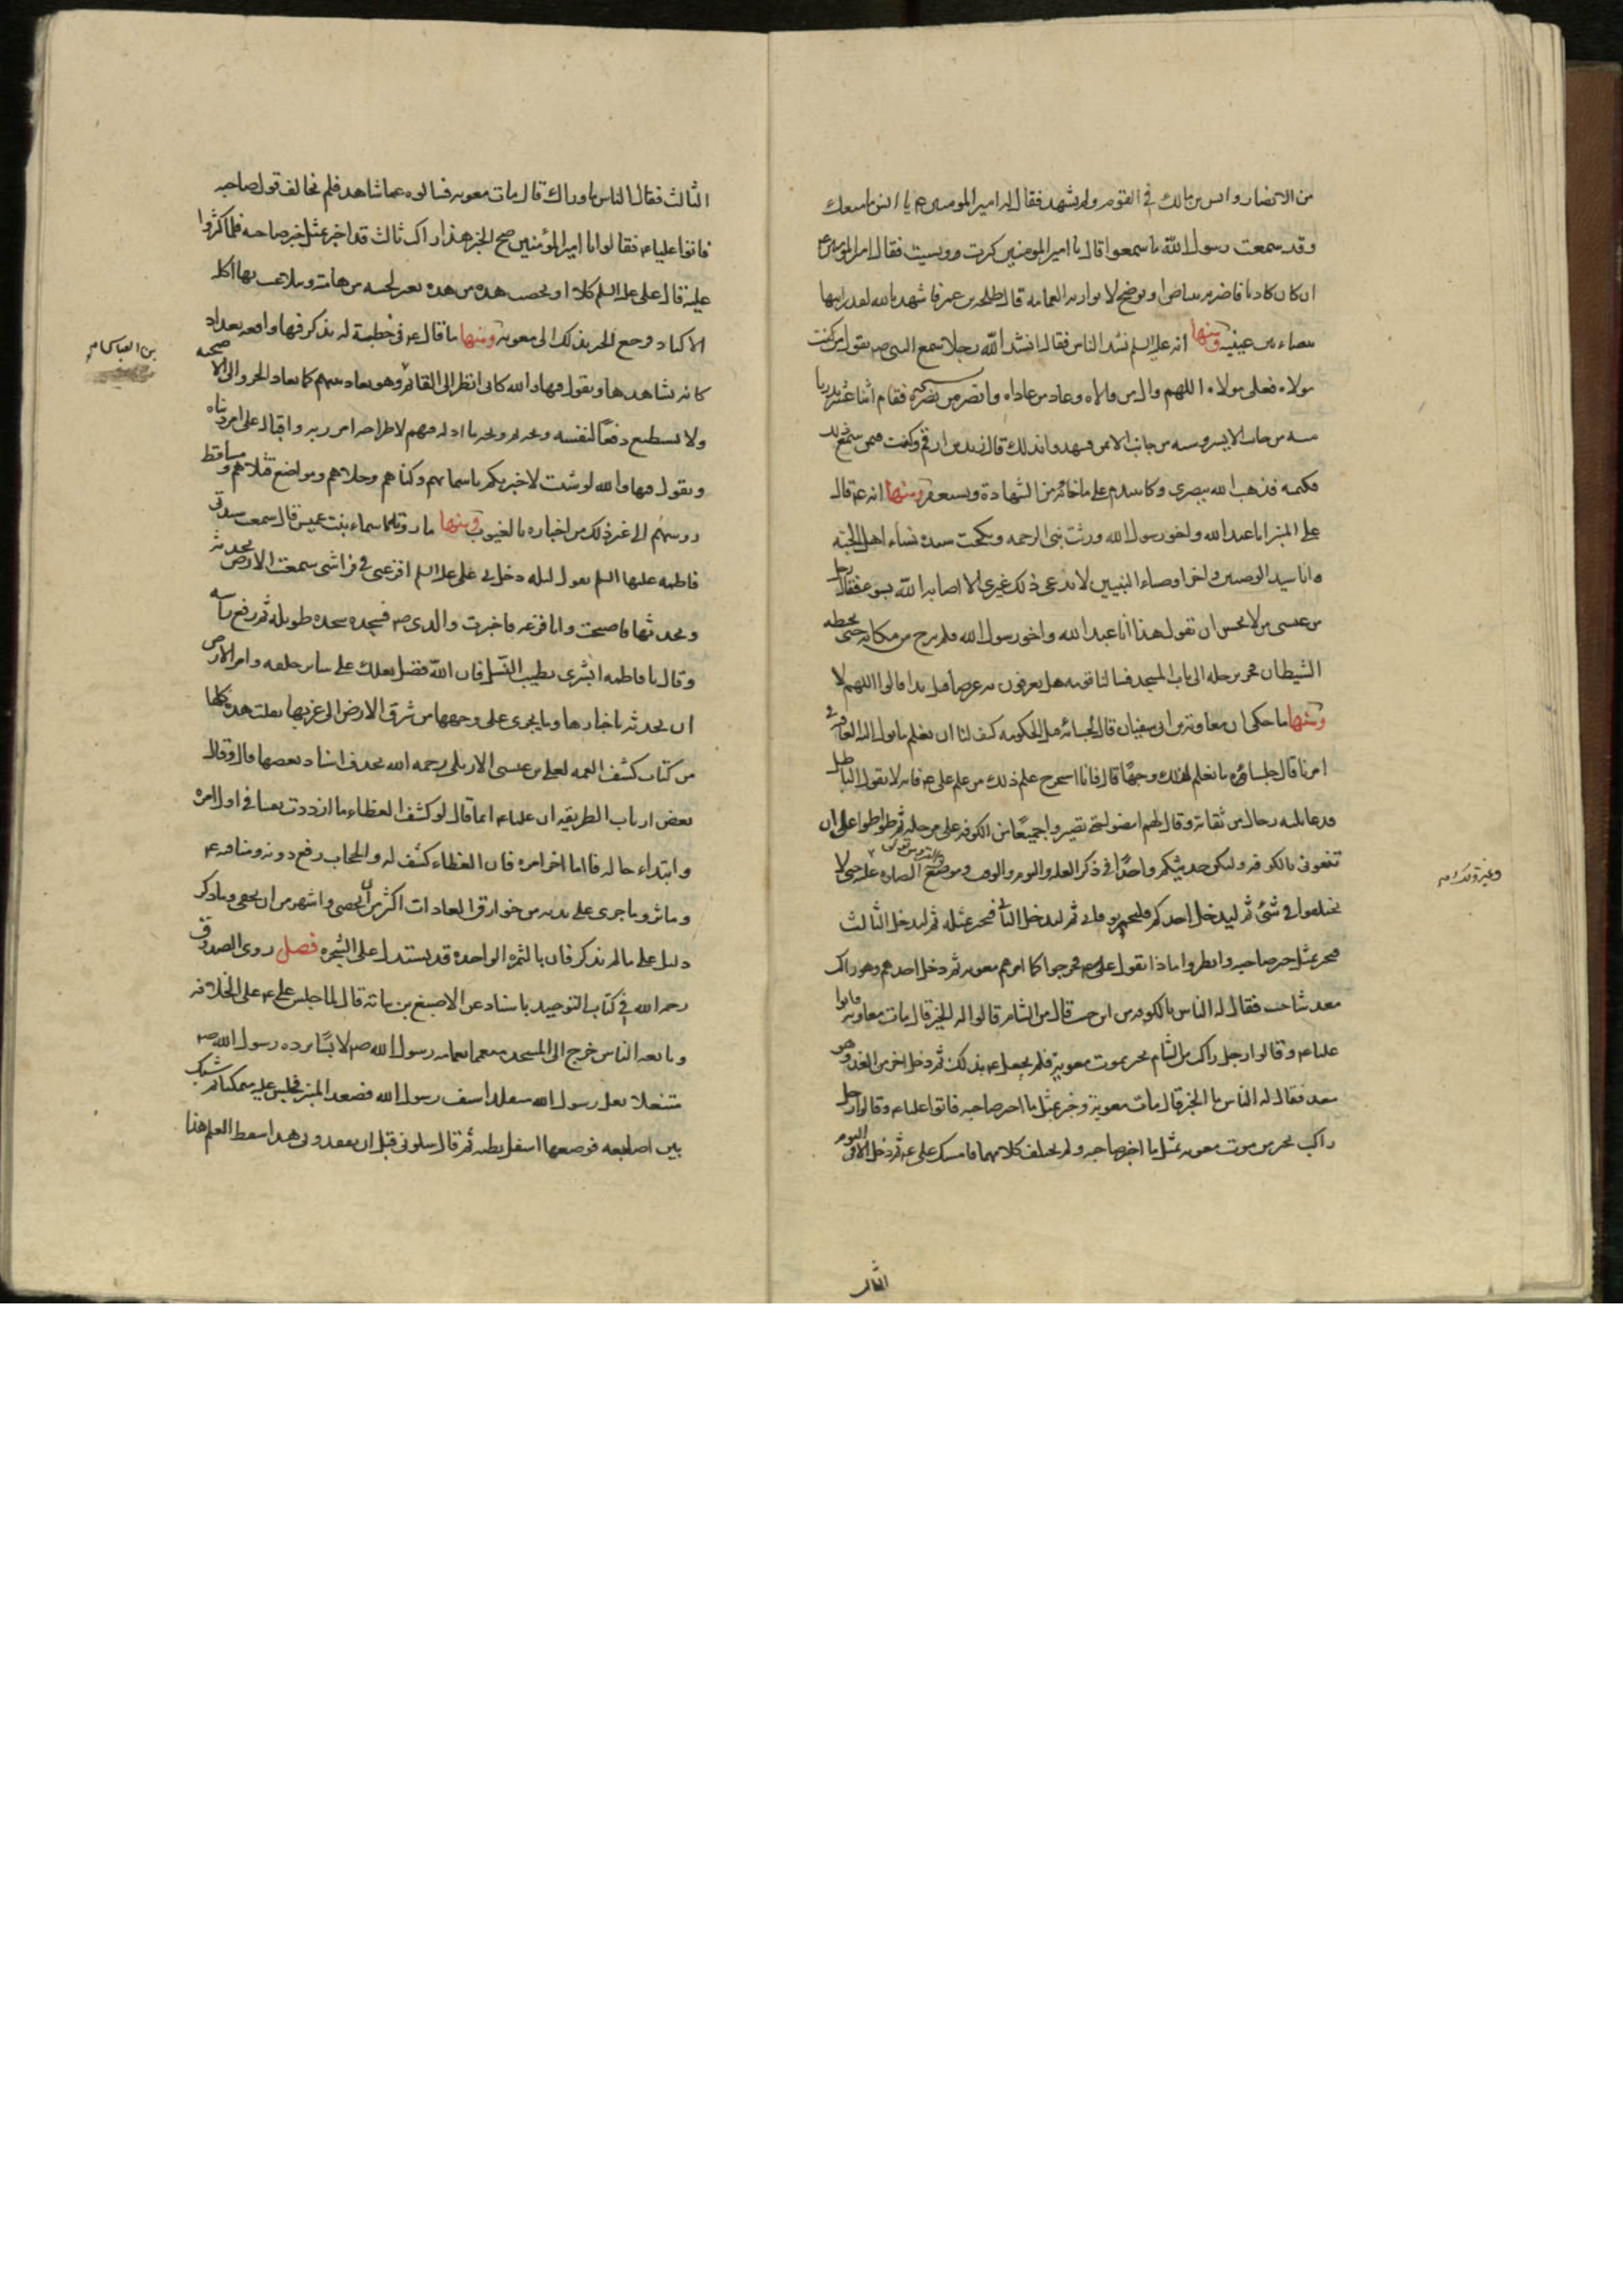 من الانصار وانس بن مالك في القوم ولم يشهد فقال له امير المومنين ع يا انس ما منعك
وقد سمعت رسول الله ما سمعوا قال يا امير المومنين كبرت ونسيت فقال امير المومنين ع
ان كان كاذبا فاضربه ببياض او بوضح لا تواريه العمامة قال طلحة بن عمير فاشهد بالله لقد رايتها
بيضاء بين عينيه ومنها انه عليه السلم نشد الناس فقال انشد الله رجلا سمع النبي ص يقول من كنت
مولاه فعلي مولاه اللهم وال من والاه وعاد من عاداه وانصر من نصره فقام اثنا عشر بدريا
ستة من جانب الايسر وستة من جانب الايمن فشهدوا بذلك قال زيد بن ارقم وكنت فيمن سمع ذلك
فكتمته فذهب الله ببصري وكان يتندم على ما فاته من الشهادة ويستغفر ومنها انه ع قال
على المنبر انا عبد الله واخو رسول الله ورثت نبي الرحمة ونكحت سيدة نساء اهل الجنة
وانا سيد الوصيين واخر اوصياء النبيين لا يدعي ذلك غيري الا اصابه الله بسوء فقال رجل
من عبس من لا يحسن ان يقول هذا انا عبد الله واخو رسول الله فلم يبرح من مكانه حتى تخبطه
الشيطان فجر برجله الى باب المسجد فسالنا قومه هل يعرفون به عرضا قبل هذا قالوا اللهم لا
ومنها ما حكي ان معاوية بن ابي سفيان قال لجلسائه بعد الحكومة كيف لنا ان نعلم ما يول اليه العاقبة في
امرنا قال جلساؤه ما نعلم لذلك وجها قال فانا استخرج علم ذلك من علم علي ع فانه لا يقول الباطل
فدعا ثلاثة رجال من ثقاته وقال لهم امضوا حتى تصيروا جميعا من الكوفة على مرحلة ثم تواطوا على ان
تنعوني بالكوفة وليكن حديثكم واحدا في ذكر العلة واليوم والوقت وموضع القبر ومن تولى الصلاة عليه حتى لا
وغير ذلك
تختلفوا في شئ ثم ليدخل احدكم فليخبر بوفاتي ثم ليدخل الثاني فيخبر بمثله ثم ليدخل الثالث
فيخبر بمثل خبر صاحبيه وانظروا ماذا يقول علي ع فخرجوا كما امرهم معويه ثم دخل احدهم وهو راكب
مغذ شاحب فقال له الناس بالكوفة من اين جئت قال من الشام قالوا له الخبر قال مات معاوية فاتوا
عليا ع وقالوا رجل راكب من الشام يخبر بموت معوية فلم يحفل ع بذلك ثم دخل اخر من الغد وهو
مغذ فقال له الناس ما الخبر قال مات معوية وخبر بمثل ما اخبر صاحبه فاتوا عليا ع وقالوا رجل
راكب يخبر من موت معويه بمثل ما اخبر صاحبه ولم يختلف كلامهما فامسك علي ع ثم دخل الاخر في اليوم
الثالث
الثالث فقال الناس ما وراك قال مات معويه فسالوه عما شاهد فلم يخالف قول صاحبه
فاتوا عليا ع فقالوا يا امير المؤمنين صح الخبر هذا راكب ثالث قد اخبر بمثل خبر صاحبه فلما كثروا
عليه قال علي عليه السلم كلا او تخضب هذه من هذه يعني لحيته من هامته ويتلاعب بها ابن اكلة
الاكباد فرجع الخبر بذلك الى معويه ومنها ما قال ع في خطبة له يذكر فيها واقعة بغداد
كانه يشاهدها ويقول فيها والله كاني انظر الى القائم وهو يقاد بينهم كما يقاد الجزور الى الاضحية
بني العباس
ولا يستطيع دفعا لنفسه ويحه ثم ويحه ما اذله فيهم لاطراحه امر ربه واقباله على امر دنياه
ويقول فيها والله لو شئت لاخبرتكم باسمائهم وكناهم وحلاهم ومواضع قتلاهم ومساقط
روسهم الى غير ذلك من اخباره بالغيوب ومنها ما روته اسماء بنت عميس قال سمعت سيدتي
فاطمه عليها السلم تقول ليلة دخل بي علي عليه السلم افزعني في فراشي سمعت الارض تحدثه
ويحدثها فاصبحت وانا فزعه فاخبرت والدي ص فسجد سجدة طويلة ثم رفع راسه
وقال يا فاطمه ابشري بطيب النسل فان الله فضل بعلك على سائر خلقه وامر الارض
ان يحدثه باخبارها وما يجري على وجهها من شرق الارض الى غربها نقلت هذه كلها
من كتاب كشف الغمه لعلي بن عيسى الاربلي رحمه الله بحذف اسناد بعضها قال وقال
بعض ارباب الطريقه ان عليا ع انما قال لو كشف الغطاء ما ازددت يقينا في اول امره
وابتداء حاله فاما اخر امره فان الغطاء كشف له والحجاب رفع دونه ومناقبه ع
وماثره وما جرى على يديه من خوارق العادات اكثر من ان يحصى واشهر من ان يخفى وما ذكر
دليل على ما لم يذكر فان بالثمره الواحدة قد يستدل على الشجره فصل روى الصدوق
رحمه الله في كتاب التوحيد باسناد عن الاصبغ بن نباته قال لما جلس علي ع على الخلافه
وبايعه الناس خرج الى المسجد متعمما بعمامة رسول الله ص لابسا برده رسول الله ص
متنعلا نعل رسول الله متقلدا سيف رسول الله فصعد المنبر فجلس عليه متمكنا ثم شبك
بين اصابعه فوضعها اسفل بطنه ثم قال سلوني قبل ان تفقدوني هذا سفط العلم هذا